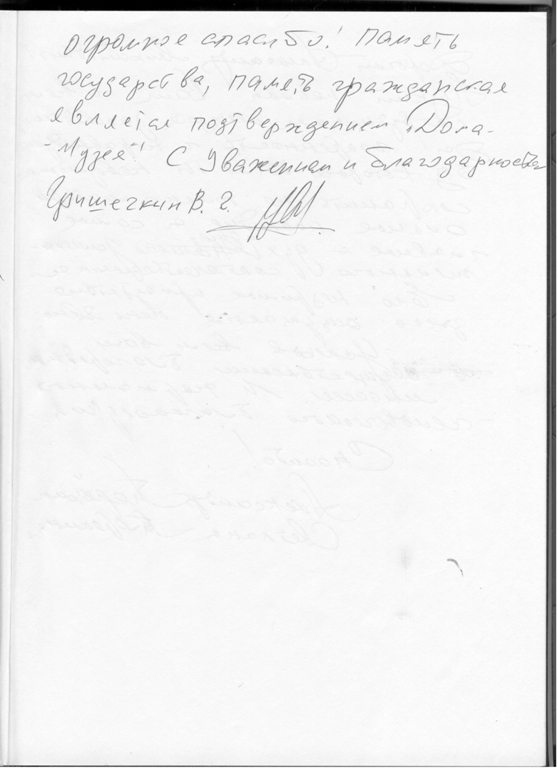 огромное спасибо! Память
государства, память гражданская
является подтверждением „Дома-
-Музея"! С Уважением и благодарностью
Гришечкин В. Г.